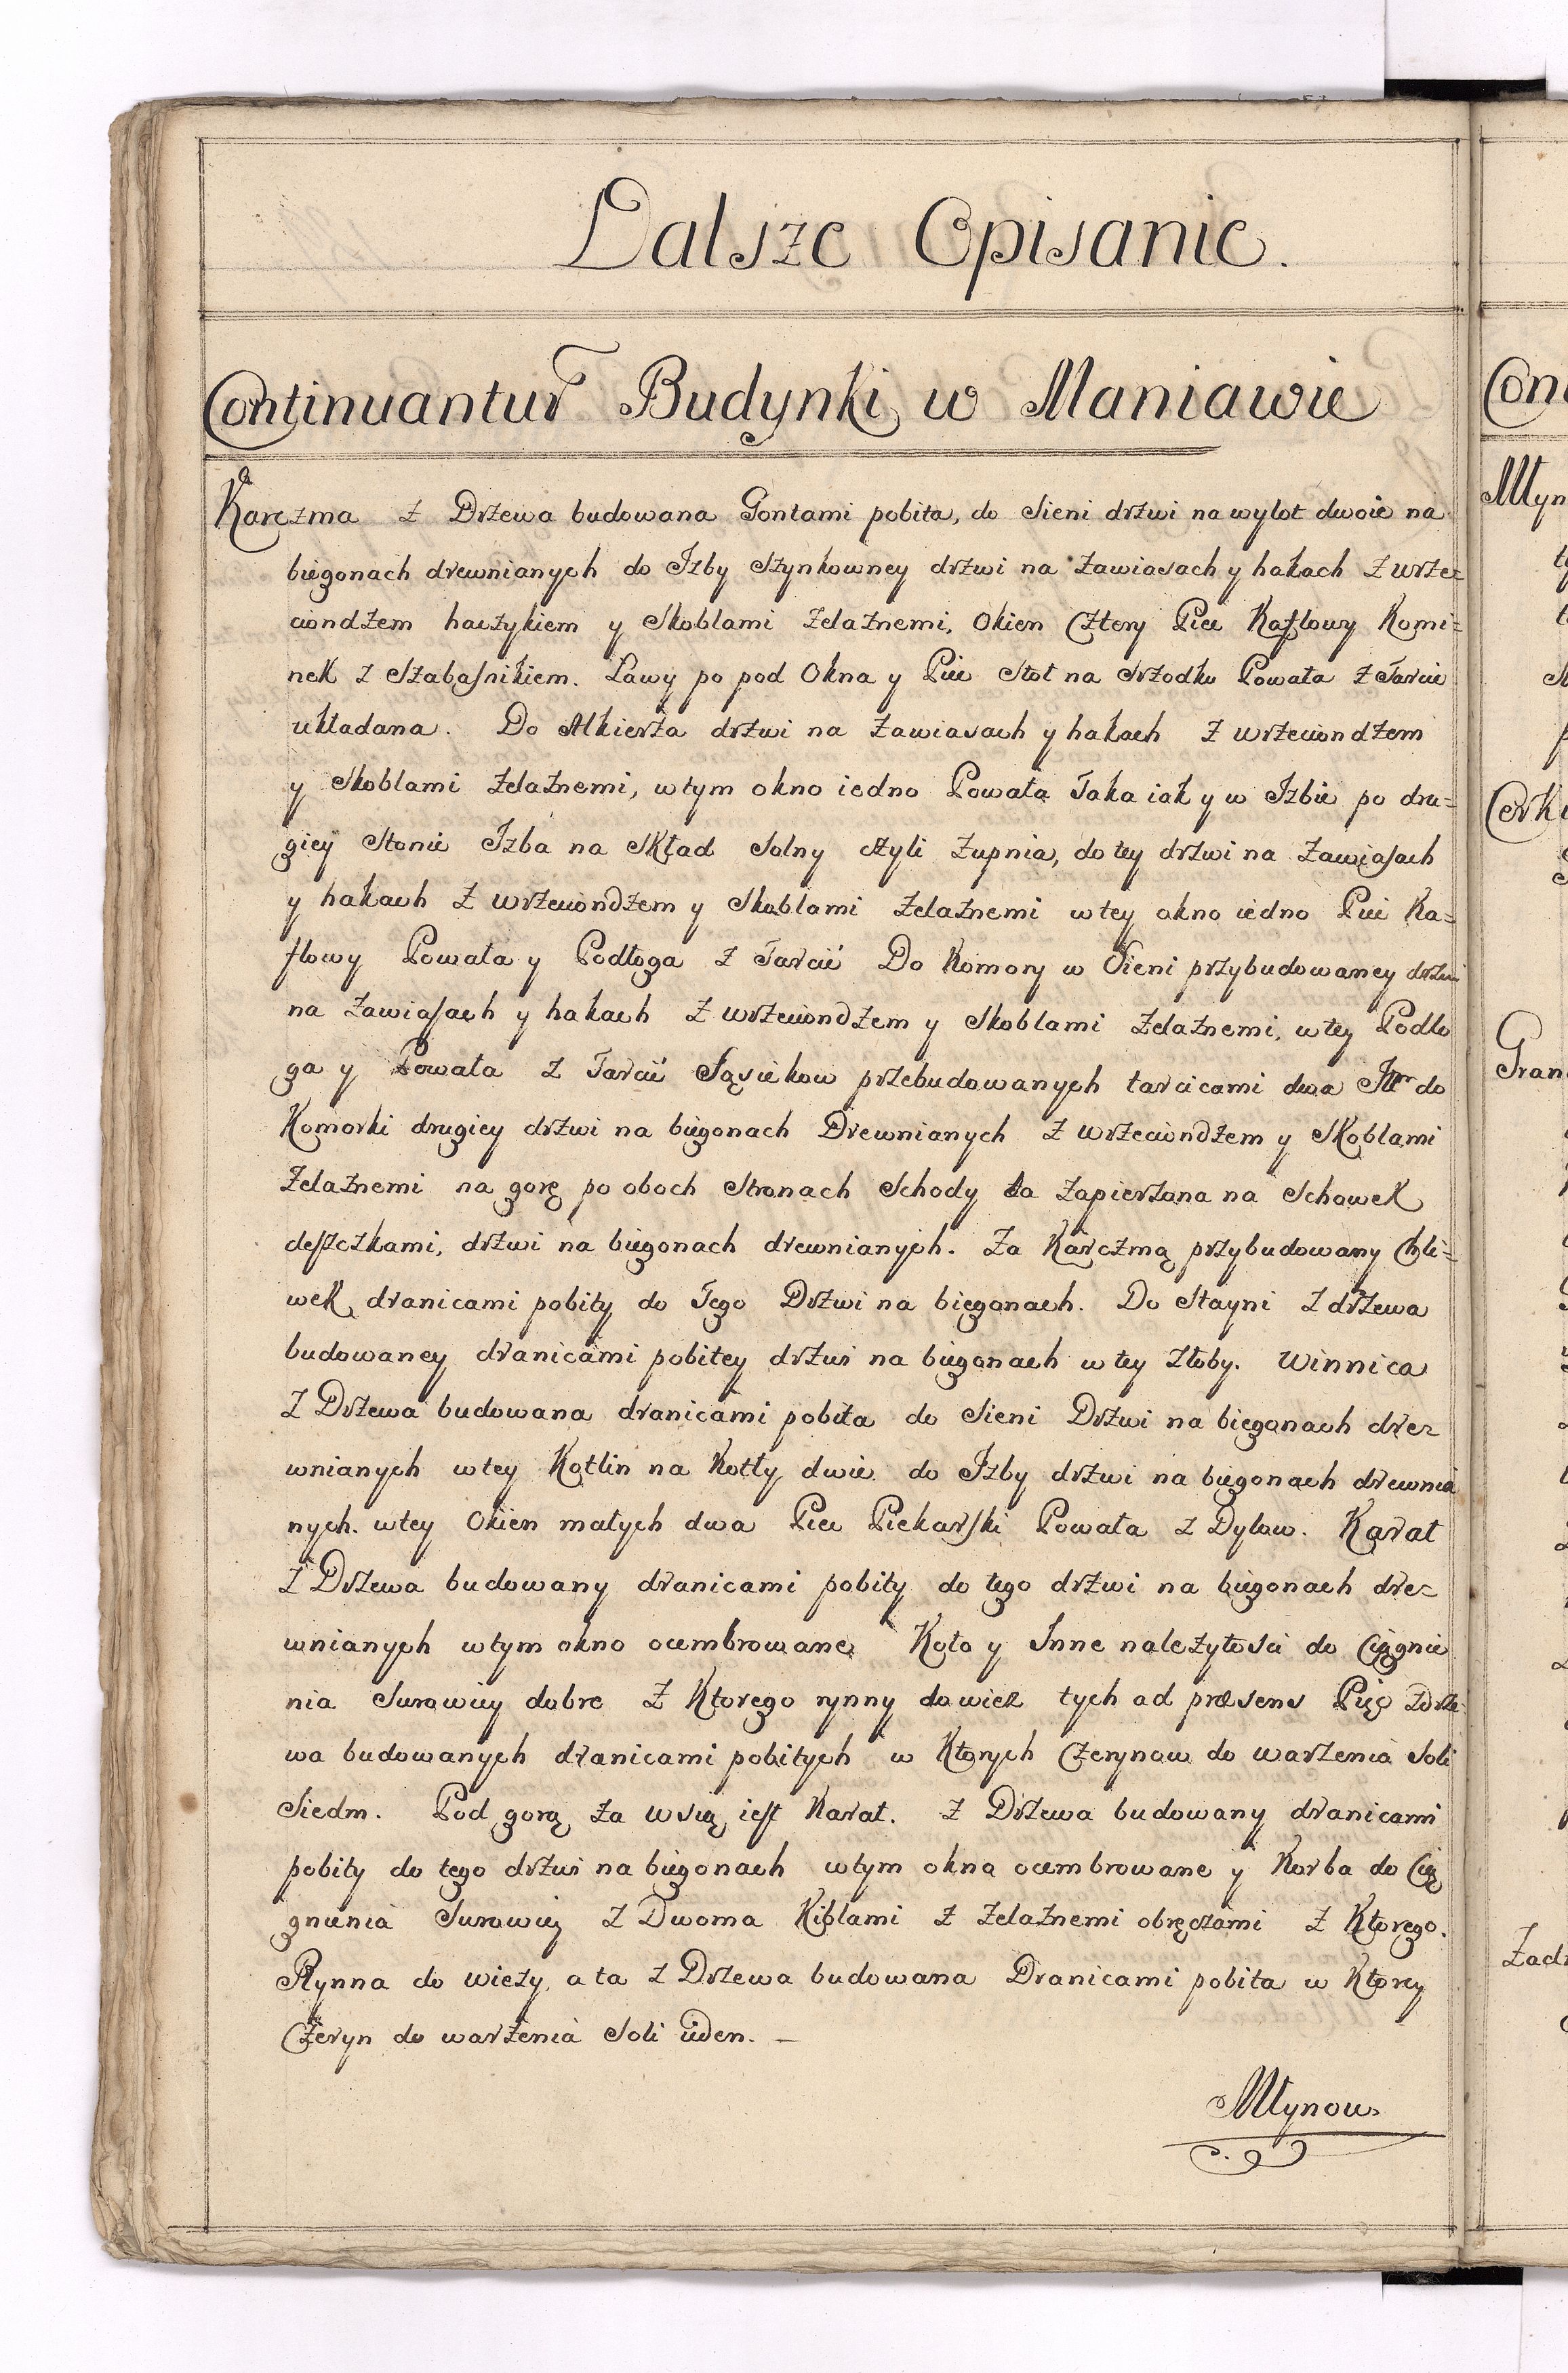 Dalsze Opisanie.
Continuantur Budynki w Maniawie
Karczma z Drzewa budowana Gontami pobita, do Sieni drzwi na wylot dwoie na
biegonach drewnianych do Izby Szynkowney drzwi na zawiasach y hakach z wrze=
ciondzem haczykiem y Skoblami żelaznemi, Okien Cztery Piec Kaflowy Komi=
nek z Szabaśnikiem. Ławy po pod Okna y Piec Stoł na Srzodku Powała z Tarcic
układana. Do Alkierza drzwi na zawiasach y hakach z wrzeciondzem
y Skoblami żelaznemi, w tym okno iedno Powała Taka iak y w Izbie po dru=
giey Stonie Izba na Skład Solny czyli Zupnia, do tey drzwi na zawiasach
y hakach z wrzeciondzem y Skoblami żelaznemi w tey okno iedno Piec Ka=
flowy Powała y Podłoga z Tarcic Do Komory w Sieni przybudowaney drzwi
na zawiasach y hakach z wrzeciondzem y Skoblami żelaznemi, w tey Podło
ga y Powała z Tarcic Sąsiekow przebudowanych tarcicami dwa do
Komorki drugiey drzwi na biegonach Drewnianych z wrzeciondzem y Skoblami
żelaznemi na gorę po oboch Stronach Schody ta zapierzona na Schowek
deszczkami, drzwi na biegonach drewnianych. Za Karczmą przybudowany Chli=
wek, dranicami pobity do Tego Drzwi na biegonach. Do Stayni z drzewa
budowaney dranicami pobitey drzwi na biegonach w tey żłoby. Winnica
z Drzewa budowana dranicami pobita do Sieni Drzwi na biegonach dre=
wnianych w tey Kotlin na Kotły dwie do Izby drzwi na biegonach drewnia
nych. w tey Okien małych dwa Piec Piekarski Powała z Dylow. Karat
z Drzewa budowany dranicami pobity do tego drzwi na biegonach dre=
wnianych w tym okno ocembrowane Koło y Inne należytości do Ciągnie
nia Surowicy dobre z Ktorego rynny do wież tych ad præsens Pięć z Drze
wa budowanych dranicami pobitych w Ktorych Czerynow do warzenia Soli
Siedm. Pod gorą za wsią iest Karat. z Drzewa budowany dranicami
pobity do tego drzwi na biegonach w tym okno ocembrowane y Korba do Cią
gnienia Surowicy z Dwoma Kiblami z żelaznemi obręczami z Ktorego.
Rynna do wieży, a ta z Drzewa budowana Dranicami pobita w Ktorey
Czeryn do warzenia Soli ieden. —
Młynow
Con
Młyn
Cerk
Gran
Zad